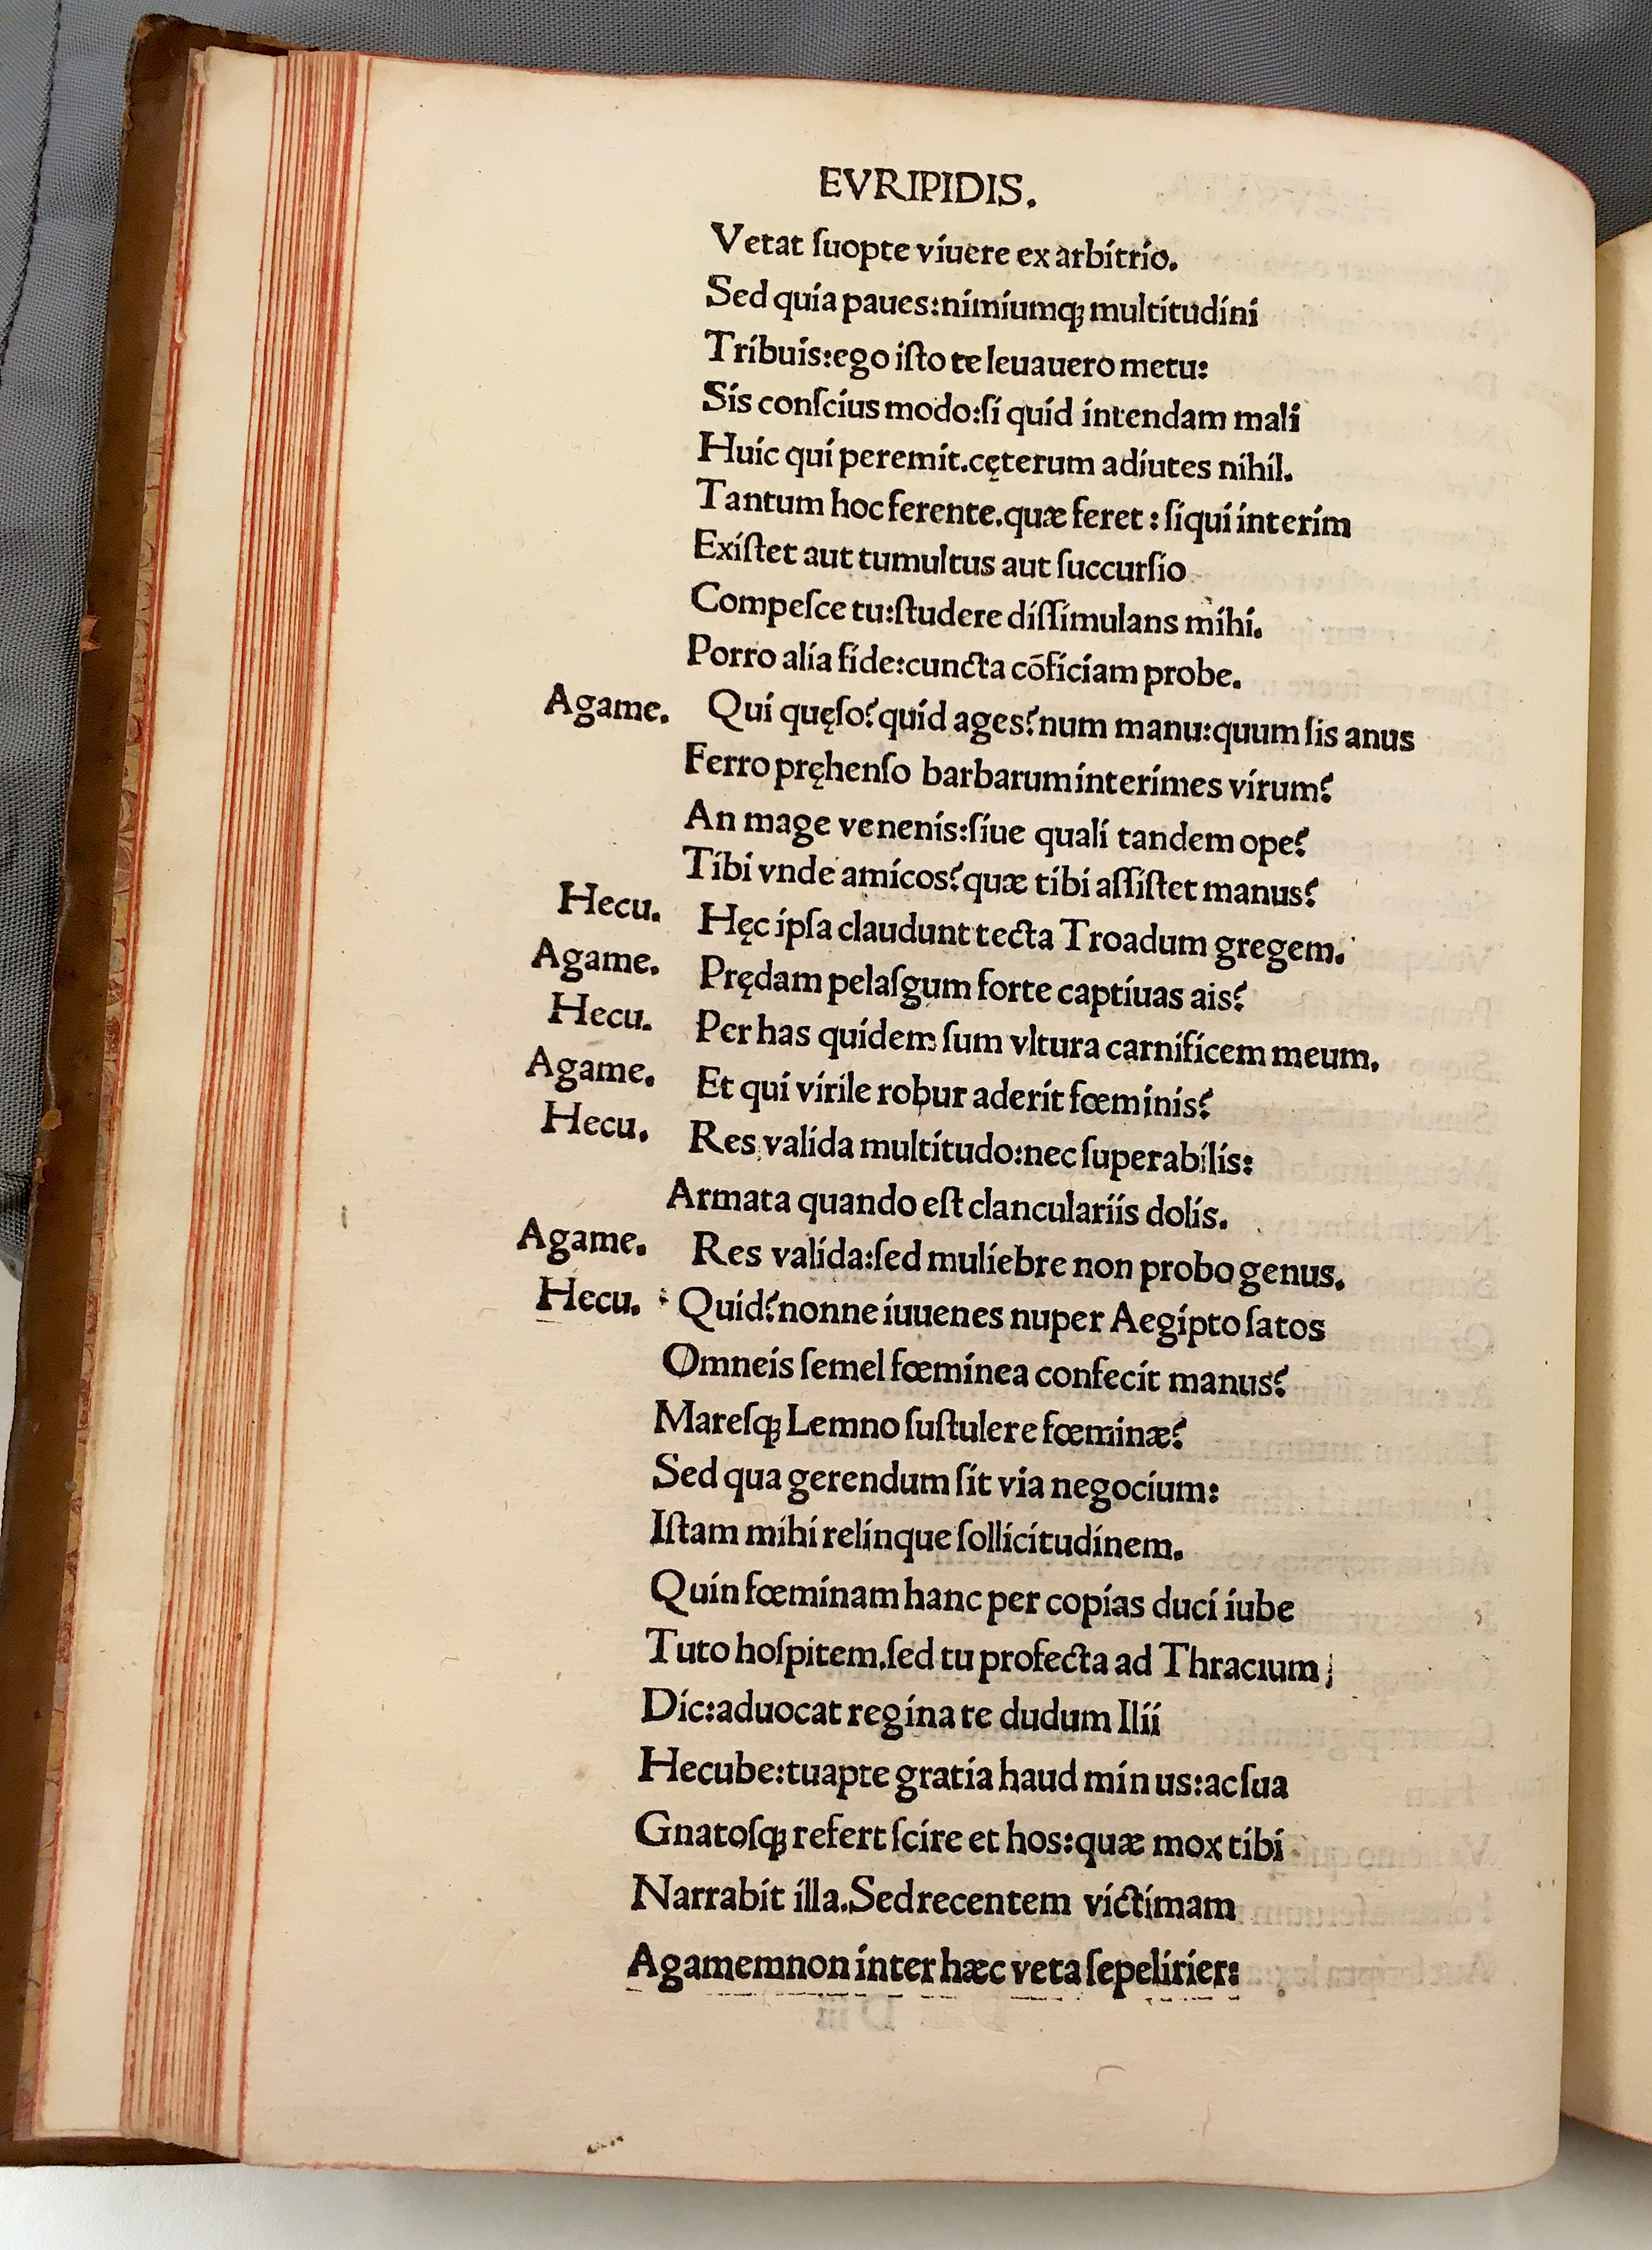 EVRIPIDIS.
Vetat ſuopte viuere ex arbitrio.
Sed quia paues:nimiumqꝫ multitudini
Tribuis:ego iſto te leuauero metu:
Sis conſcius modo:ſi quid intendam mali
Huic qui peremit.cęterum adiutes nihil.
Tantum hoc ferente.quæ feret : ſiqui interim
Exiſtet aut tumultus aut ſuccurſio
Compeſce tu:ſtudere diſſimulans mihi.
Porro alia fide:cuncta cõficiam probe.
Agame. Qui quęſo?quid ages?num manu:quum ſis anus
Ferro pręhenſo barbarum interimes virum?
An mage venenis:ſiue quali tandem ope?
Tibi vnde amicos?quæ tibi aſſiſtet manus?
Hecu. Hęc ipſa claudunt tecta Troadum gregem.
Agame. Prędam pelaſgum forte captiuas ais?
Hecu. Per has quidem ſum vltura carnificem meum.
Agame. Et qui virile robur aderit fœminis?
Hecu. Res valida multitudo:nec ſuperabilis:
Armata quando eſt clanculariis dolis.
Agame. Res valida:ſed muliebre non probo genus.
Hecu. Quid?nonne iuuenes nuper Aegipto ſatos
Omneis ſemel fœminea confecit manus?
Mareſqꝫ Lemno ſuſtulere fœminæ?
Sed qua gerendum ſit via negocium:
Iſtam mihi relinque ſollicitudinem.
Quin fœminam hanc per copias duci iube
Tuto hoſpitem.ſed tu profecta ad Thracium
Dic:aduocat regina te dudum Ilii
Hecube:tuapte gratia haud minus:ac ſua
Gnatoſqꝫ refert ſcire et hos:quæ mox tibi
Narrabit illa.Sed recentem victimam
Agamemnon inter hæc veta ſepelirier: